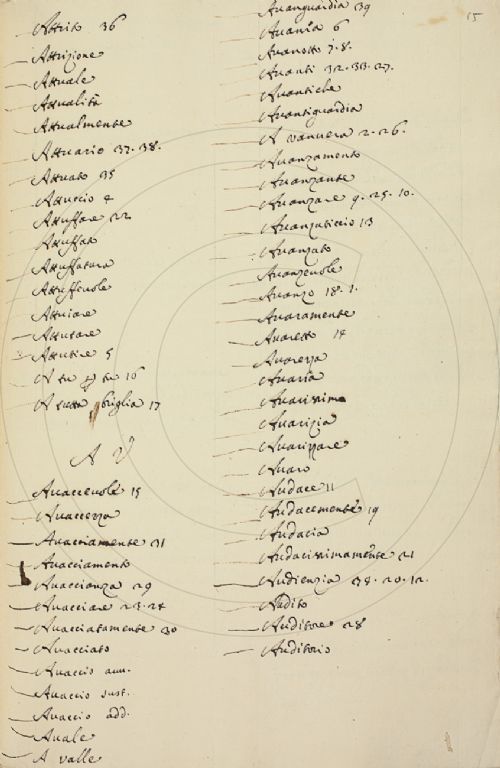 15
Attrito 36
Attrizione
Attuale
Attualità
Attualmente
Attuario 37. 38.
Attuato 35
Attuccio 4
Attuffare 22
Attuffato
Attuffatura
Attuffevole
Attuiare
Attutare
Attutire 5
A tu p tu 16
A tutta briglia 17
A V
Avaccevole 15
Avaccezza
Avacciamente 31
Avacciamento
Avaccianza 29
Avacciare 23. 24
Avacciatamente 30
Avacciato
Avaccio auu.
Avaccio sust.
Avaccio add.
Avale
A valle
Avanguardia 39
Avania 6
Avanotto 7. 8.
Avanti 32. 33. 27.
Avantiche
Avantiguardia
A vanvera 2. 26.
Avanzamento
Avanzante
Avanzare 9. 25. 10.
Avanzaticcio 13
Avanzato
Avanzevole
Avanzo 18. 1.
Avaramente
Avaretto 14
Avarezza
Avaria
Avarissimo
Avarizia
Avarizzare
Avaro
Audace 11
Audacemente 19
Audacia
Audacissimamente 21
Audienzia 34. 20. 12.
Audito
Auditore 28
Auditorio